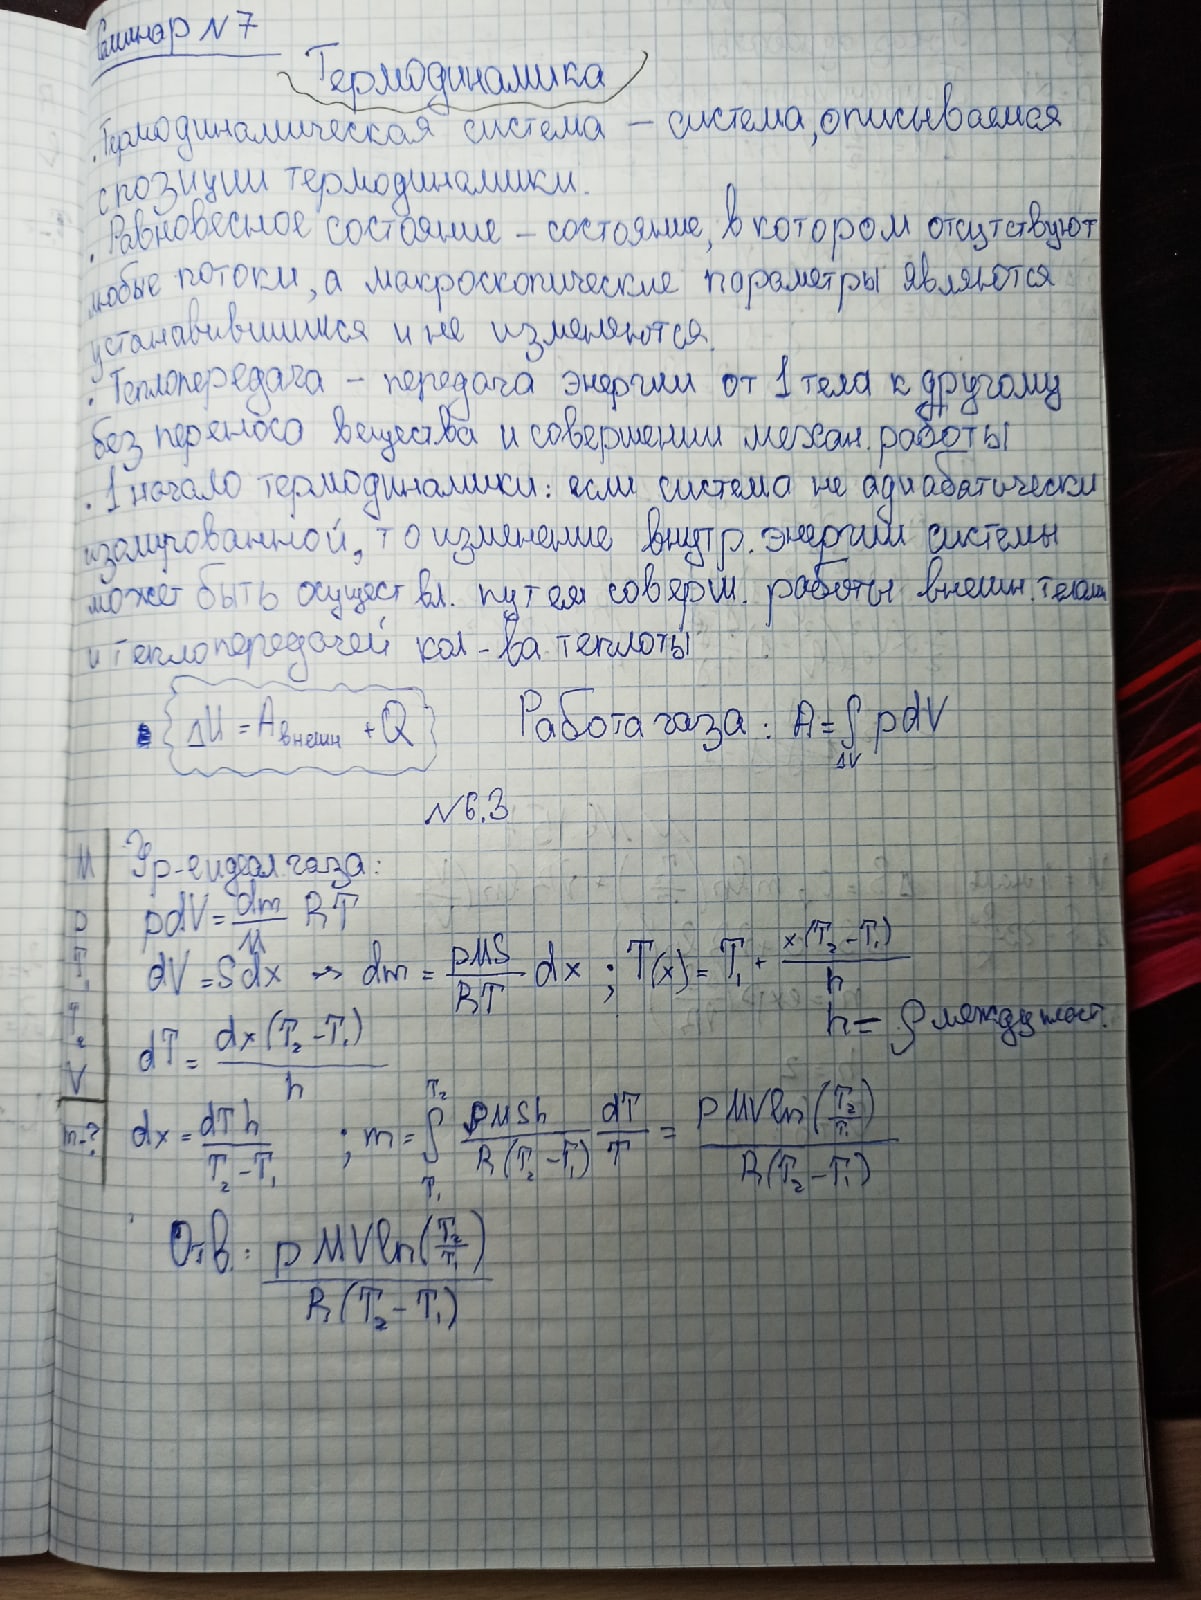 Семинар N 7
Термодинамика
. Термодинамическая система – система, описываемая
с позиции термодинамики.
. Равновесное состояние – состояние, в котором отсутствуют
любые потоки, а макроскопические параметры являются
устанавившимися и не изменяются.
. Теплопередача – передача энергии от 1 тела к другому
без переноса вещества и совершении механ. работы
. 1 начало термодинамики: если система не адиабатически
изолированной, то изменение внутр. энергии системы
может быть осуществл. путем соверш. работы внешн. телами
и теплопередачей кол-ва теплоты
ΔU = A внешн + Q Работа газа: A = ∫ΔV pdV
N 6.3
Ур-е идеал газа:
pdV = dm/M RT
dV = Sdx → dm = pMS/RT dx ; T(x) = T₁ + x(T₂ – T₁)/h
h = ρ между пласт.
dT = dx(T₂ – T₁)/h
M p T₁ T₂ V
m-?
dx = dT h/(T₂ – T₁) ; m = ∫T₁T₂ pMSh/R(T₂ – T₁) dT/T = pMV ln(T₂/T₁)/R(T₂ – T₁)
Отв: pMV ln(T₂/T₁)/R(T₂ – T₁)